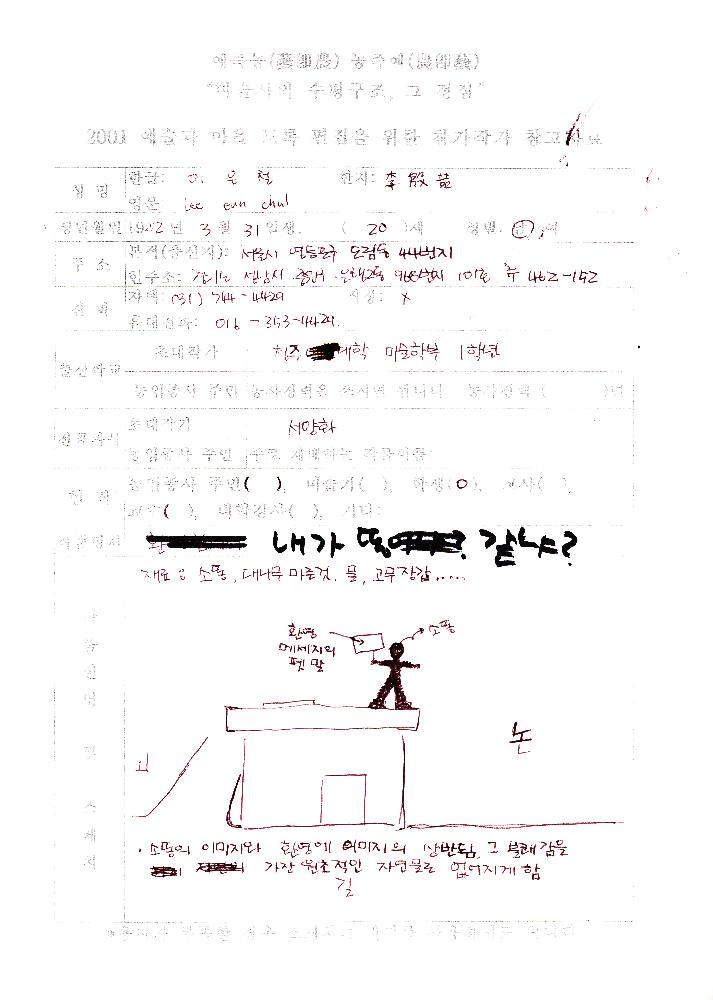 예즉농(藝卽農) 농즉예(農卽藝)
"대문사의 수평구조, 그 정점"
2001 예술과 마을 도록 편집을 위한 참가작가 참고자료
성 명 한글: 이 은 철 한자: 李 殷
영문 Lee eun chul
생년월일 1982년 3월 31일생. ( 20 )세 성별: 남, 여
주 소 본적(출신지): 서울시 영등포구 도림동 44번지
현주소: 경기도 성남시 중원구 은행2동 968번지 101호 우 462-152
전 화 자택: (031) 744-4429 직장: X
휴대전화: 016-353-4429
출신학교 초대작가 대학 미술학부 1학년
농업종사 주민 농사경력은 쓰시면 됩니다 농사경력 ( )년
전공과목 초대작가 서양화
농업종사 주민 주로 재배하는 작물이름:
현 직 농업종사 주민( ), 미술가( ), 학생(O), 교사( ),
교수( ), 대학강사( ), 기타:
작품명제 내가 같냐?
재료 : 소똥, 대나무 마른것, 물, 고무장갑.....
환영
메세지의
팻말
소똥
논
작품설명 및 스케치
· 소똥의 이미지와 환영에 이미지의 상반됨, 그 불쾌감을
가장 원초적인 자연물로 없어지게 함
길